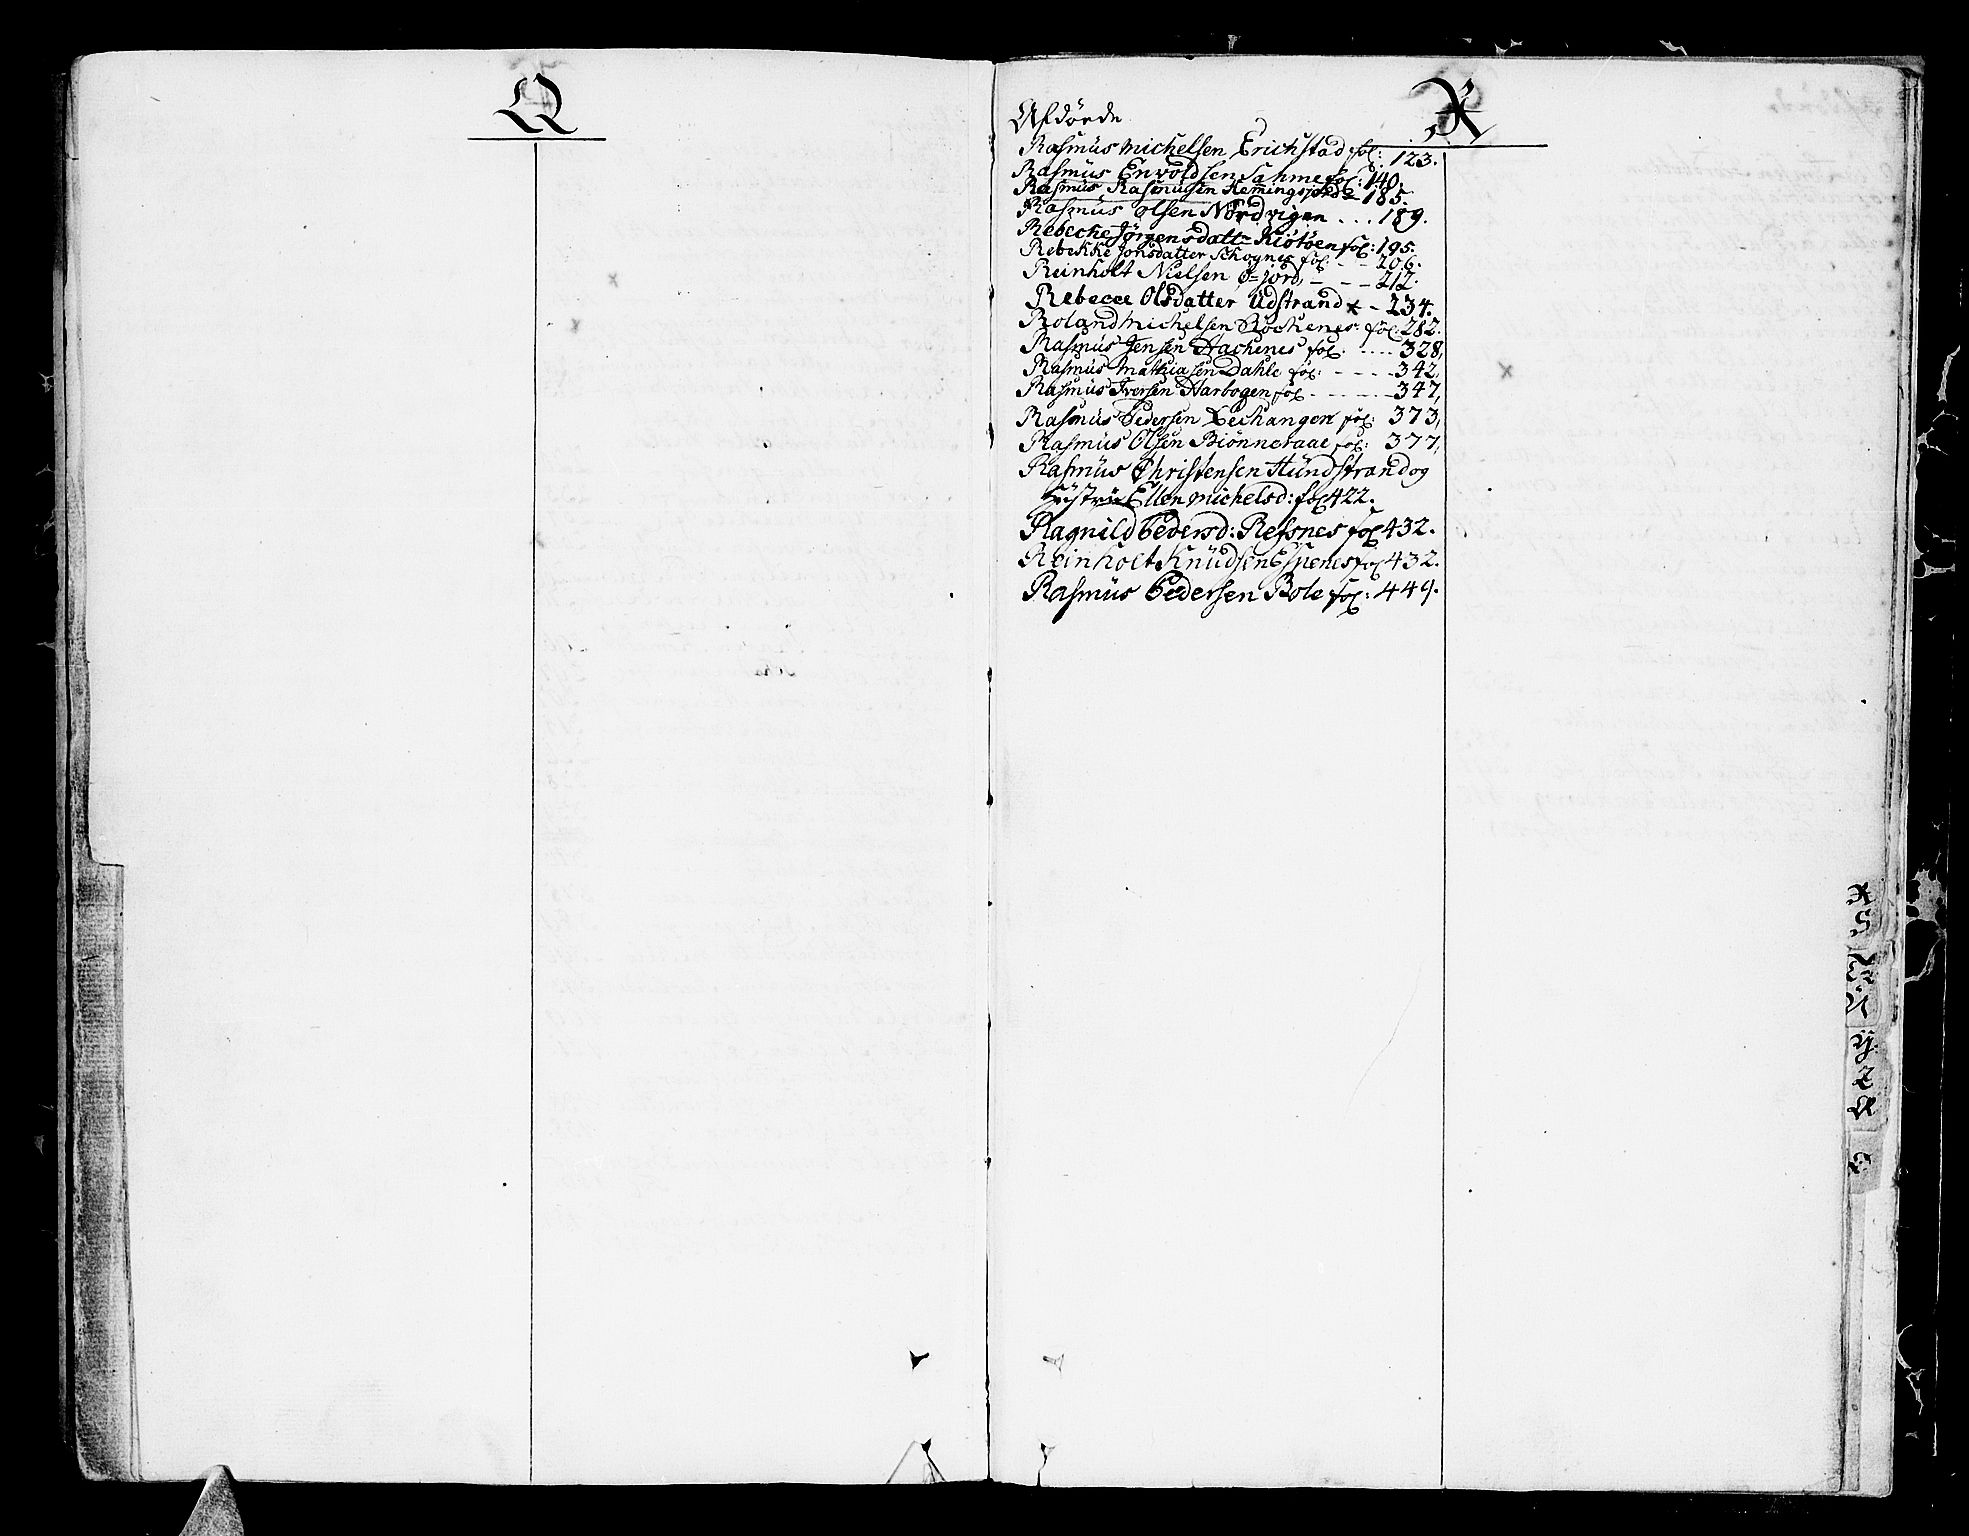 Q
R
Afdöede
Rasmus Michelsen Erichstad fol: 123.
Rasmus Enwoldsen Sahme fol: 140.
Rasmus Rasmusen Hemingsjord 185.
Rasmus Olsen Nordvigen ... 189.
Rebecke Jörgensdatt= Kiötöen fol: 195.
Rebekke Jonsdatter Schognes fol: - - 206.
Reinholt Nielsen Ö=jord, - - - 212.
Rebecce Olsdatter Udstrand x - 234.
Roland Michelsen Rochenes fol: 282.
Rasmus Jensen Hachenes fol: .... 328,
Rasmus Mathiasen Dahle fol: - - - - 342,
Rasmus Iversen Harbogen fol - - - - 347,
Rasmus Pedersen Lechangen fol: 373,
Rasmus Olsen Biönneraae fol: 377,
Rasmus Christensen Hundstrand og
Hustrue Ellen Michelsd: fol 422.
Ragnild Pedersd: Refsnes fol 432.
Reinholt Knudsen Espenes fol 432.
Rasmus Pedersen Bole fol: 449.